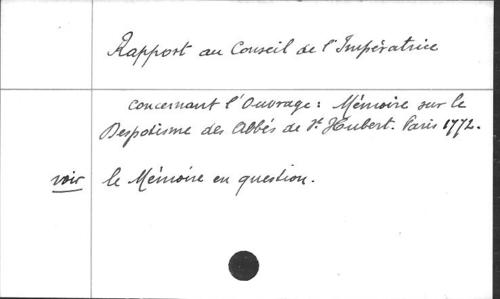 Rapport au Conseil de l'Impératrice
concernant l'Ouvrage: Mémoire sur le
Despotisme des Abbés de St Hubert. Paris 1772.
voir le Mémoire en question.